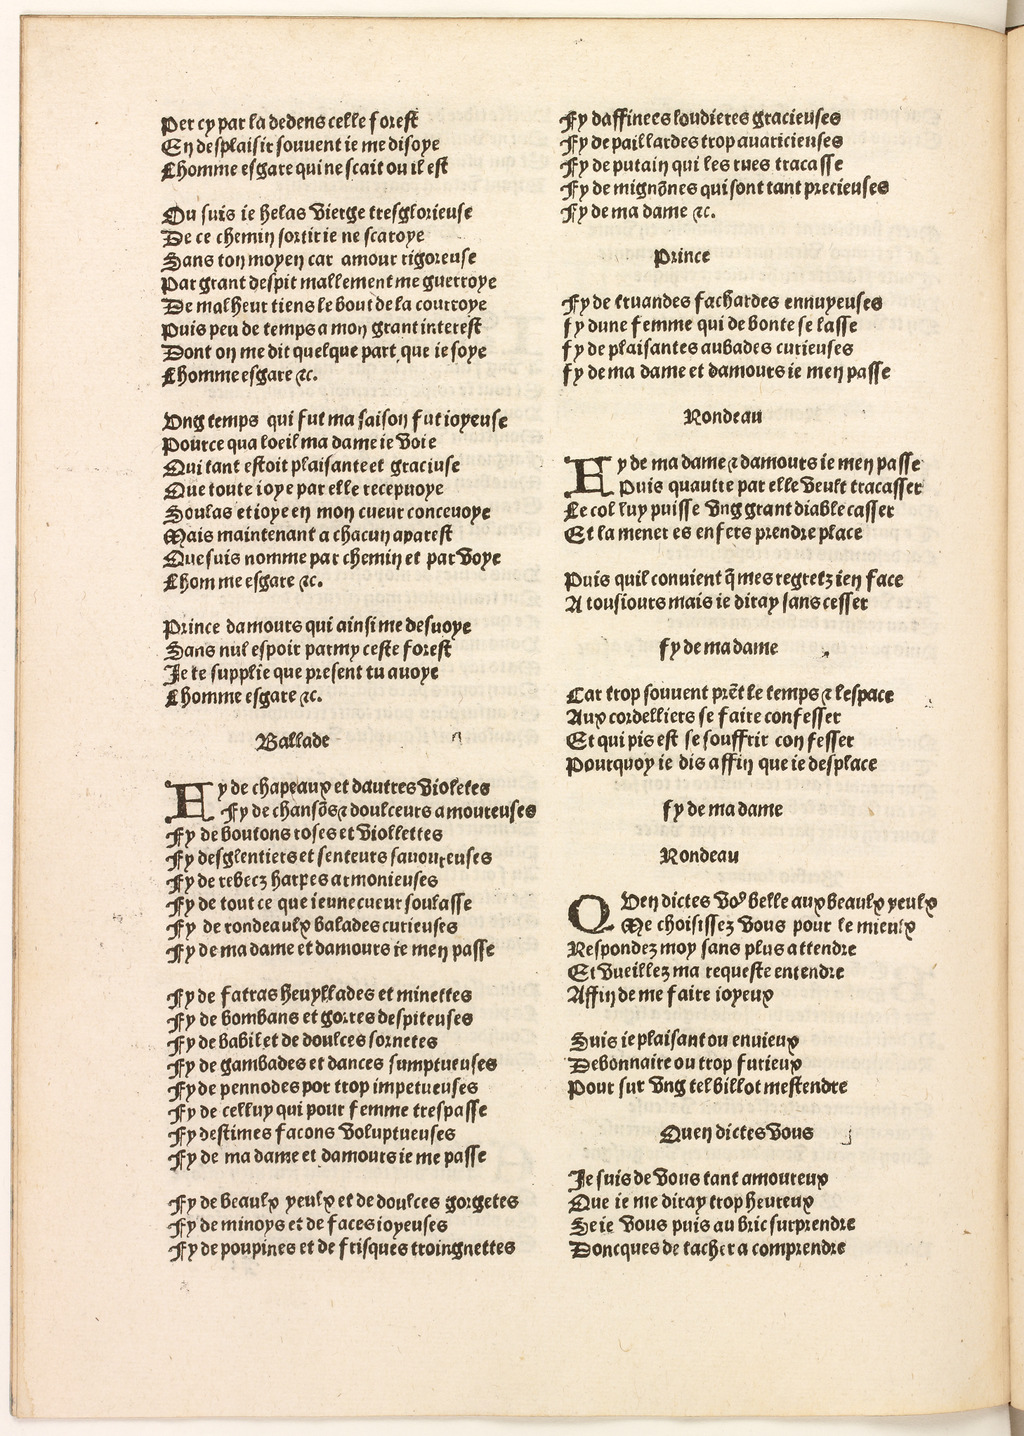 Per cy par la dedens celle forest
En desplaisir souuent ie me disoye
Lhomme esgare qui ne scait ou il est
Ou suis ie helas vierge tresglorieuse
De ce chemin sortir ie ne scaroye
Sans ton moyen car amour rigoreuse
Par grant despit mallement me guerroye
De malheur tiens le bout de la courroye
Puis peu de temps a mon grant interest
Dont on me dit quelque part que ie soye
Lhomme esgare ⁊c.
Vng temps qui fut ma saison fut ioyeuse
Pource qua loeil ma dame ie voie
Qui tant estoit plaisante et graciuse
Que toute ioye par elle recepuoye
Soulas et ioye en mon cueur conceuoye
Mais maintenant a chacun aparest
Que suis nomme par chemin et par voye
Lhomme esgare ⁊c.
Prince damours qui ainsi me desuoye
Sans nul espoir parmy ceste forest
Je te supplie que present tu auoye
Lhomme esgare ⁊c.
Ballade
Fy de chapeaux et dautres violetes
Fy de chansõs ⁊ doulceurs amoureuses
Fy de boutons roses et viollettes
Fy desglentiers et senteurs sauoureuses
Fy de rebecz harpes armonieuses
Fy de tout ce que ieune cueur soulasse
Fy de rondeaulx balades curieuses
Fy de ma dame et damours ie men passe
Fy de fatras heuyllades et minettes
Fy de bombans et gorres despiteuses
Fy de babil et de doulces sornetes
Fy de gambades et dances sumptueuses
Fy de pennodes por trop impetueuses
Fy de celluy qui pour femme trespasse
Fy destimes facons voluptueuses
Fy de ma dame et damours ie me passe
Fy de beaulx yeulx et de doulces gorgetes
Fy de minoys et de faces ioyeuses
Fy de poupines et de frisques troingnettes
Fy daffinees loudieres gracieuses
Fy de paillardes trop auaricieuses
Fy de putain qui les rues tracasse
Fy de mignõnes qui sont tant precieuses
Fy de ma dame ⁊c.
Prince
Fy de truandes fachardes ennuyeuses
fy dune femme qui de bonte se lasse
fy de plaisantes aubades curieuses
fy de ma dame et damours ie men passe
Rondeau
Fy de ma dame ⁊ damours ie men passe
Puis quautre par elle veult tracasser
Le col luy puisse vng grant diable casser
Et la mener es enfers prendre place
Puis quil conuient q̃ mes regretz ien face
A tousiours mais ie diray sans cesser
fy de ma dame
Car trop souuent prẽt le temps ⁊ lespace
Aux cordelliers se faire confesser
Et qui pis est se souffrir con fesser
Pourquoy ie dis affin que ie desplace
fy de ma dame
Rondeau
Quen dictes voꝰ belle aux beaulx yeulx
Me choisissez vous pour le mieulx
Respondez moy sans plus attendre
Et vueillez ma requeste entendre
Affin de me faire ioyeux
Suis ie plaisant ou enuieux
Debonnaire ou trop furieux
Pour sur vng tel billot mestendre
Quen dictes vous
Je suis de vous tant amoureux
Que ie me diray trop heureux
Se ie vous puis au bric surprendre
Doncques de tacher a comprendre